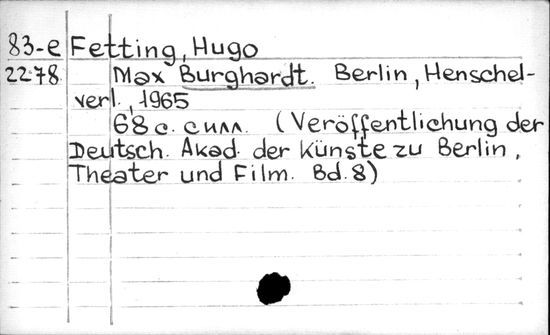 83-е Fetting, Hugo
22278 Max Burghardt. Berlin, Henschel-
verl., 1965
68 с. с илл. (Veröffentlichung der
Deutsch. Akad. der Künste zu Berlin,
Theater und Film. Bd. 8)